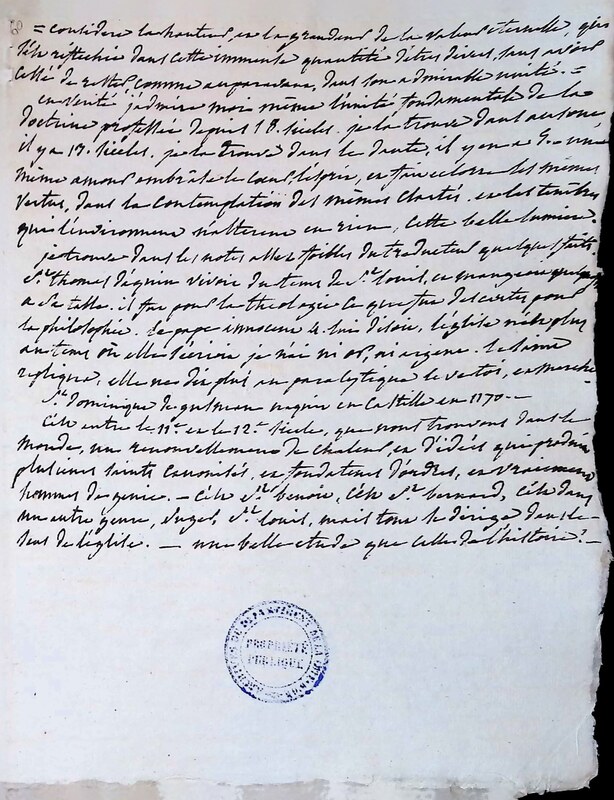 = considere la hauteur, et la grandeur de la valeur eternelle, qui
s'est reflechie dans cette immense quantité d'êtres divers, sans avoir
cessé de rester, comme auparavant, dans son admirable unité. =
en verité j'admire moi même l'unité fondamentale de la
doctrine professée depuis 18. siecles. je la trouve dans
il y a 17. siecles. je la trouve dans le dante, il y en a 5. – une
même amour embrâse le coeur, l'esprit, et fait eclorre les mêmes
vertus, dans la contemplation des mêmes clartés. et les tenebres
qui l'environnent n'alterent en rien, cette belle lumiere.
je trouve dans les notes assez foibles du traducteur quelques faits.
St. thomas d'aquin vivoit du tems de St. louis, et mangeoit quelquefois
a sa table. il fut pour la theologie ce que fut descartes pour
la philosophie. le pape innocent 4. lui disoit, l'église n'est plus
au tems où elle disoit je n'ai ni or, ni argent. le saint
repliqua, elle ne dit plus au paralytique leve toi, et marche
St. dominique de gusman naquit en Castille en 1170 –
C'est entre le 11e. et le 12e. siecle, que nous trouvons dans le
monde, un renouvellement de chaleur, et d'idées qui produit
plusieurs saints canonisés, et fondateurs d'ordres, et vraiment
hommes de genie. – c'est St. benoit, c'est St. bernard, c'est dans
un autre genre, suger, St. louis, mais tout se dirige dans le
sens de l'église. – une belle etude que celle de l'histoire! –
PROPRIÉTÉ
PUBLIQUE